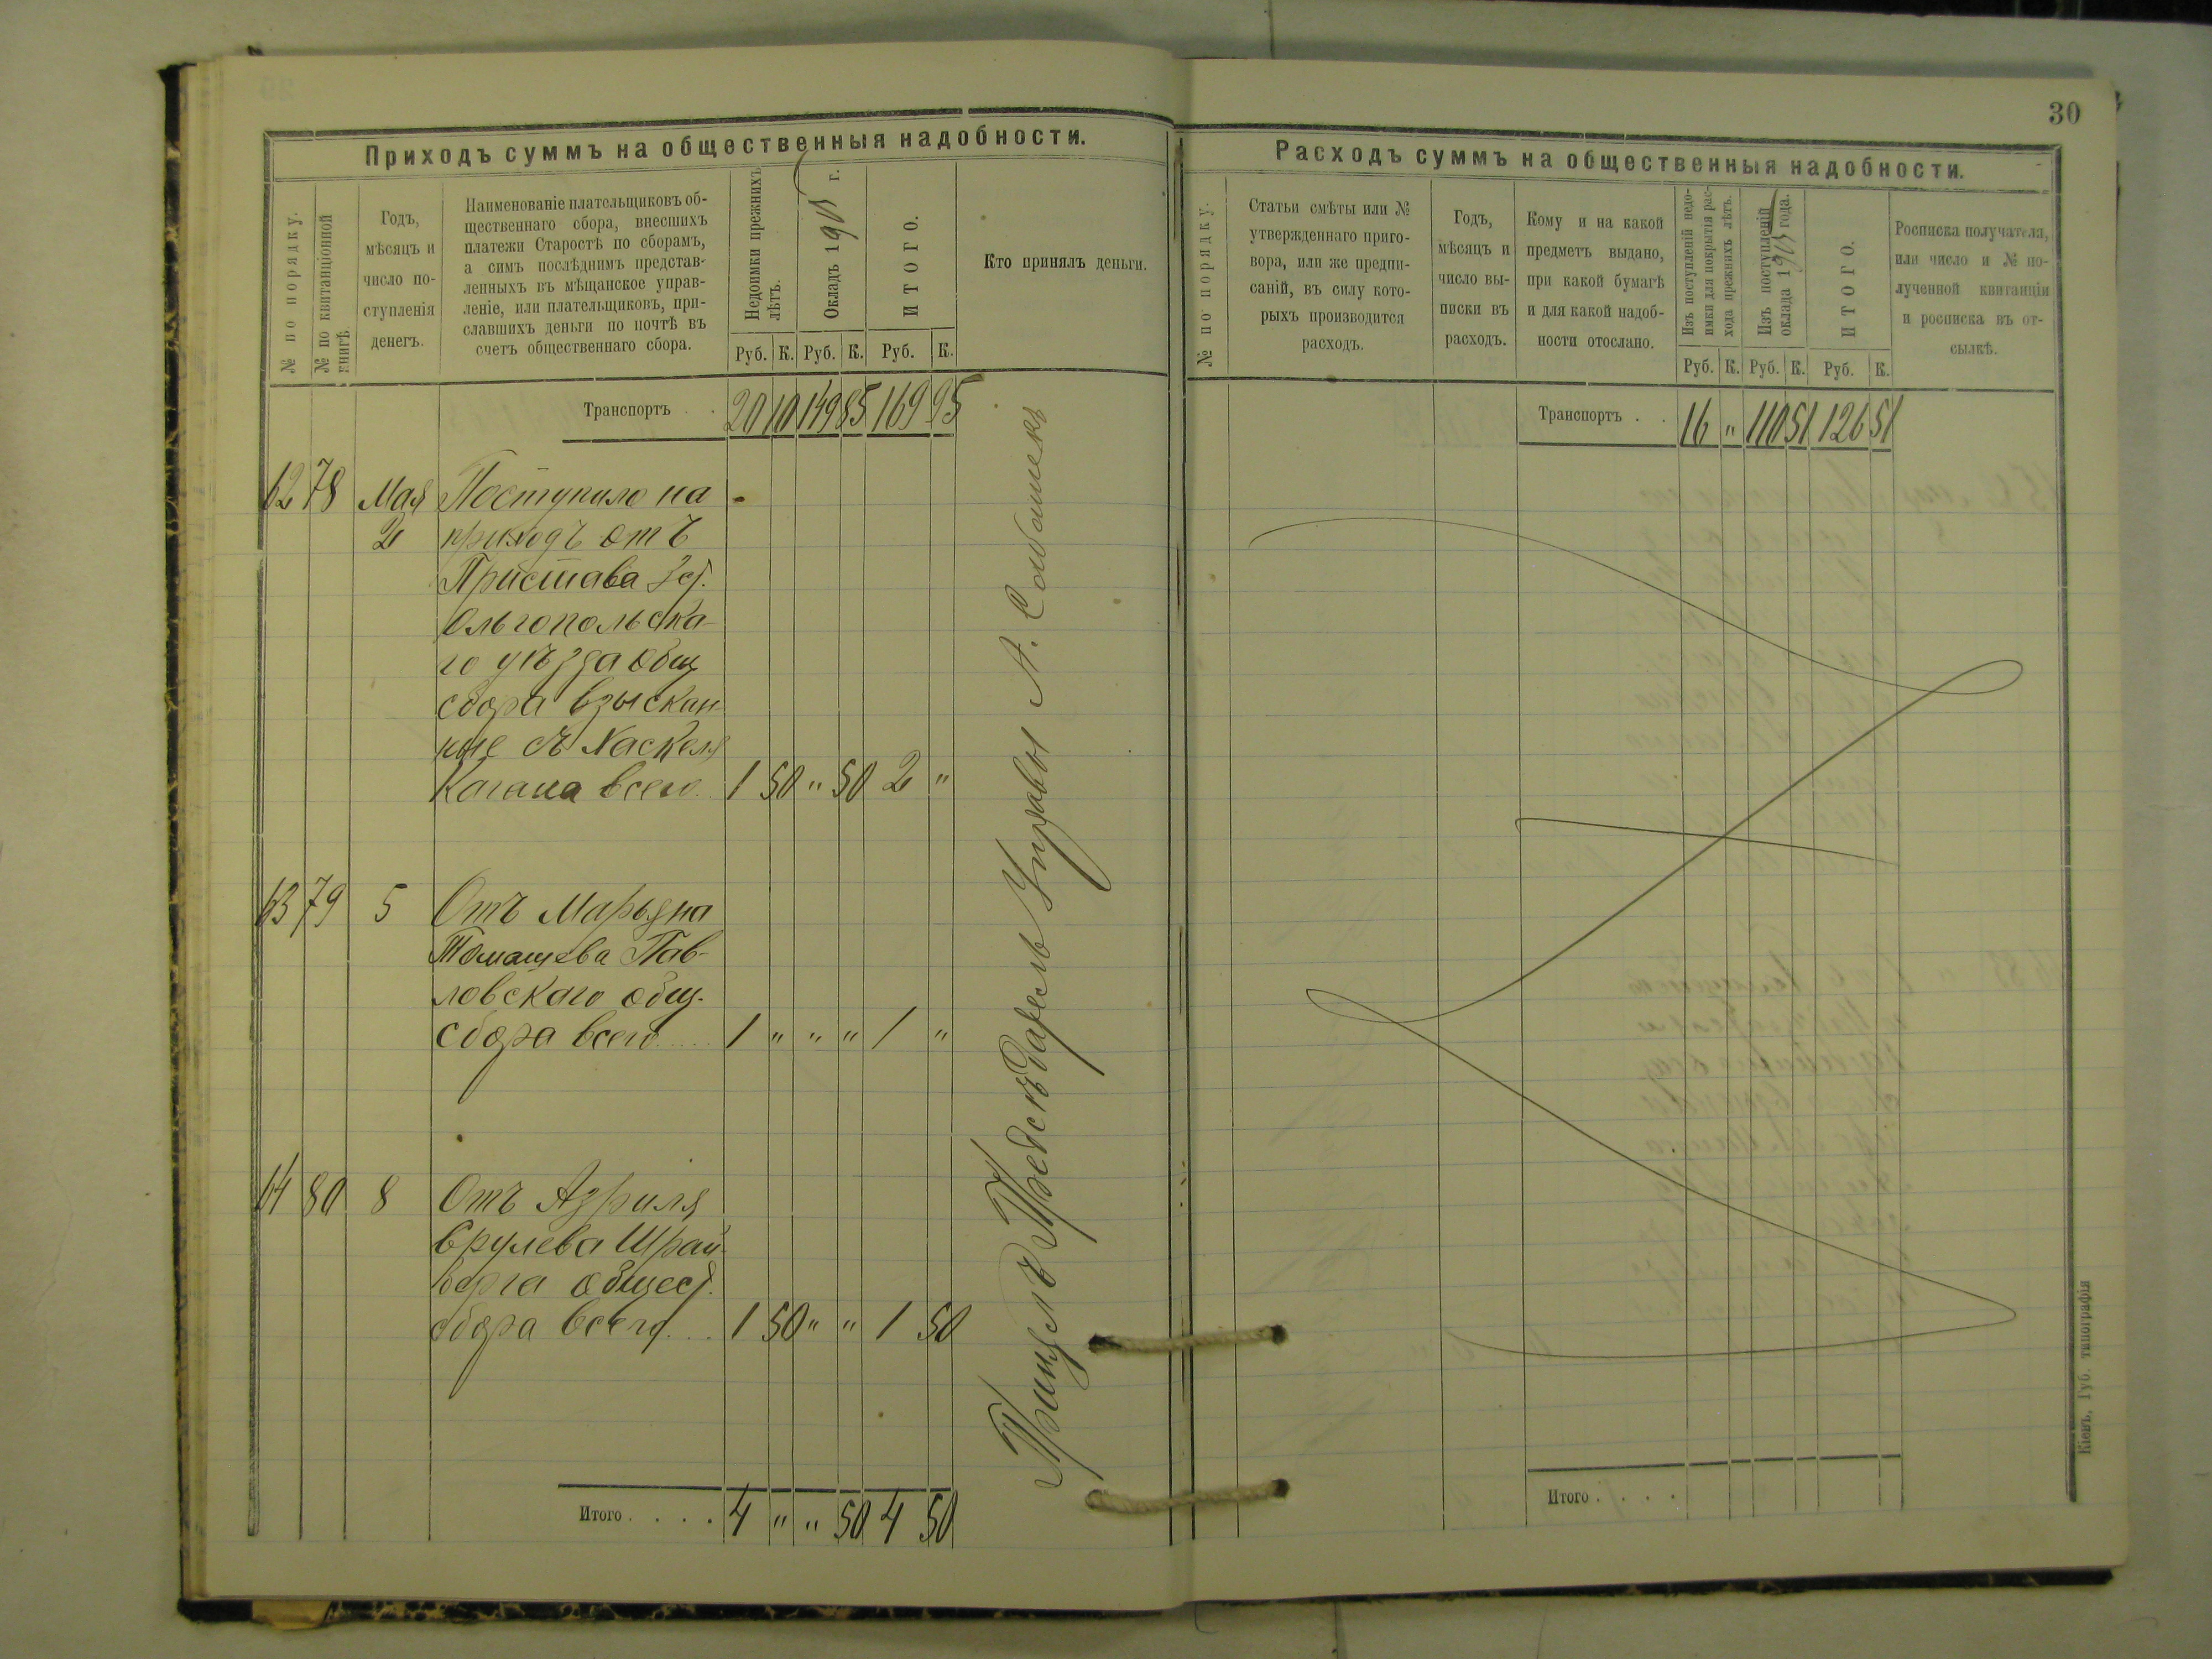 30
Приходъ суммъ на общественныя надобности.
№ по порядку.
№ по квитанціонной
книгѣ.
Годъ,
мѣсяцъ и
число по-
ступленія
денегъ.
Наименованіе плательщиковъ об-
щественнаго сбора, внесшихъ
платежи Старостѣ по сборамъ,
а симъ послѣднимъ представ-
ленныхъ въ мѣщанское управ-
леніе, или плательщиковъ, при-
славшихъ деньги по почтѣ въ
счетъ общественнаго сбора.
Недоимки прежнихъ
лѣтъ.
Окладъ 190 г.
ИТОГО.
Кто принялъ деньги.
Руб. К. Руб. К. Руб. К.
Транспортъ . . 20 10 149 85 169 95
62 78 Мая Поступило на
2 приходъ отъ
Пристава 3 ст.
Ольгопольска-
го уѣзда общ
сбора взыскан-
ные съ Хаскеля
Кагана всего.. 1 50 " 50 2 "
63 79 5 Отъ Марьяна
Томашева Пав-
ловскаго общ.
сбора всего..... 1 " " " 1 "
64 80 8 Отъ Азриля
Срулева Шрай-
берга общест.
сбора всего.... 1 50 " " 1 50
Итого . . . . 4 " " 50 4 50
Принялъ Предсѣдатель Управы А.
Расходъ суммъ на общественныя надобности.
№ по порядку.
Статьи смѣты или №
утвержденнаго приго-
вора, или же предпи-
саній, въ силу кото-
рыхъ производится
расходъ.
Годъ,
мѣсяцъ и
число вы-
писки въ
расходъ.
Кому и на какой
предметъ выдано,
при какой бумагѣ
и для какой надоб-
ности отослано.
Изъ поступленій недо-
имки для покрытія рас-
хода прежнихъ лѣтъ.
Изъ поступленій
оклада 190 года.
ИТОГО.
Росписка получателя,
или число и № по-
лученной квитанціи
и росписка въ от-
сылкѣ.
Руб. К. Руб. К. Руб. К.
Транспортъ . . 16 " 110 51 126 51
Итого . . . .
Кіевъ, Губ. типографія